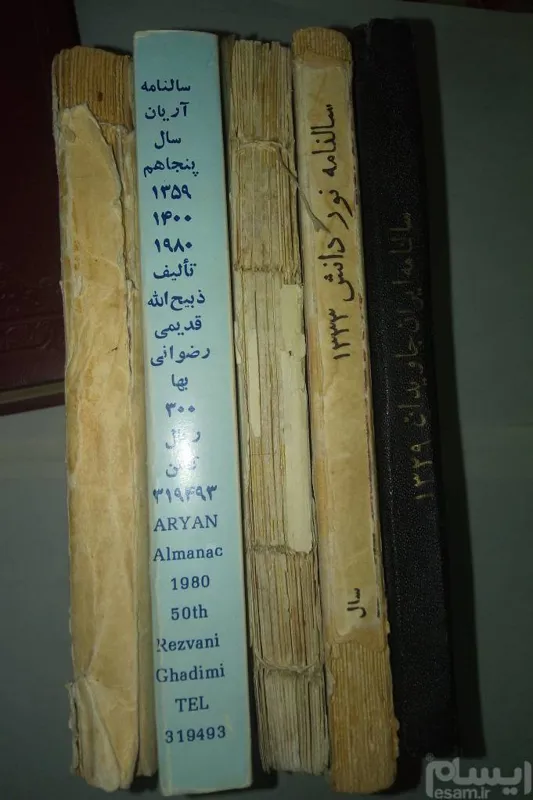 سالنامه
آریان
سال
پنجاهم
۱۳۵۹
۱۴۰۰
۱۹۸۰
تألیف
ذبیح‌الله
قدیمی
رضوانی
بها
۳۰۰
ریال
تلفن
۳۱۹۴۹۳
ARYAN
Almanac
1980
50th
Rezvani
Ghadimi
TEL
319493
سالنامه نور دانش ۱۳۳۳
سال
سالنامه ایران جاویدان ۱۳۳۹
ایسام
esam.ir